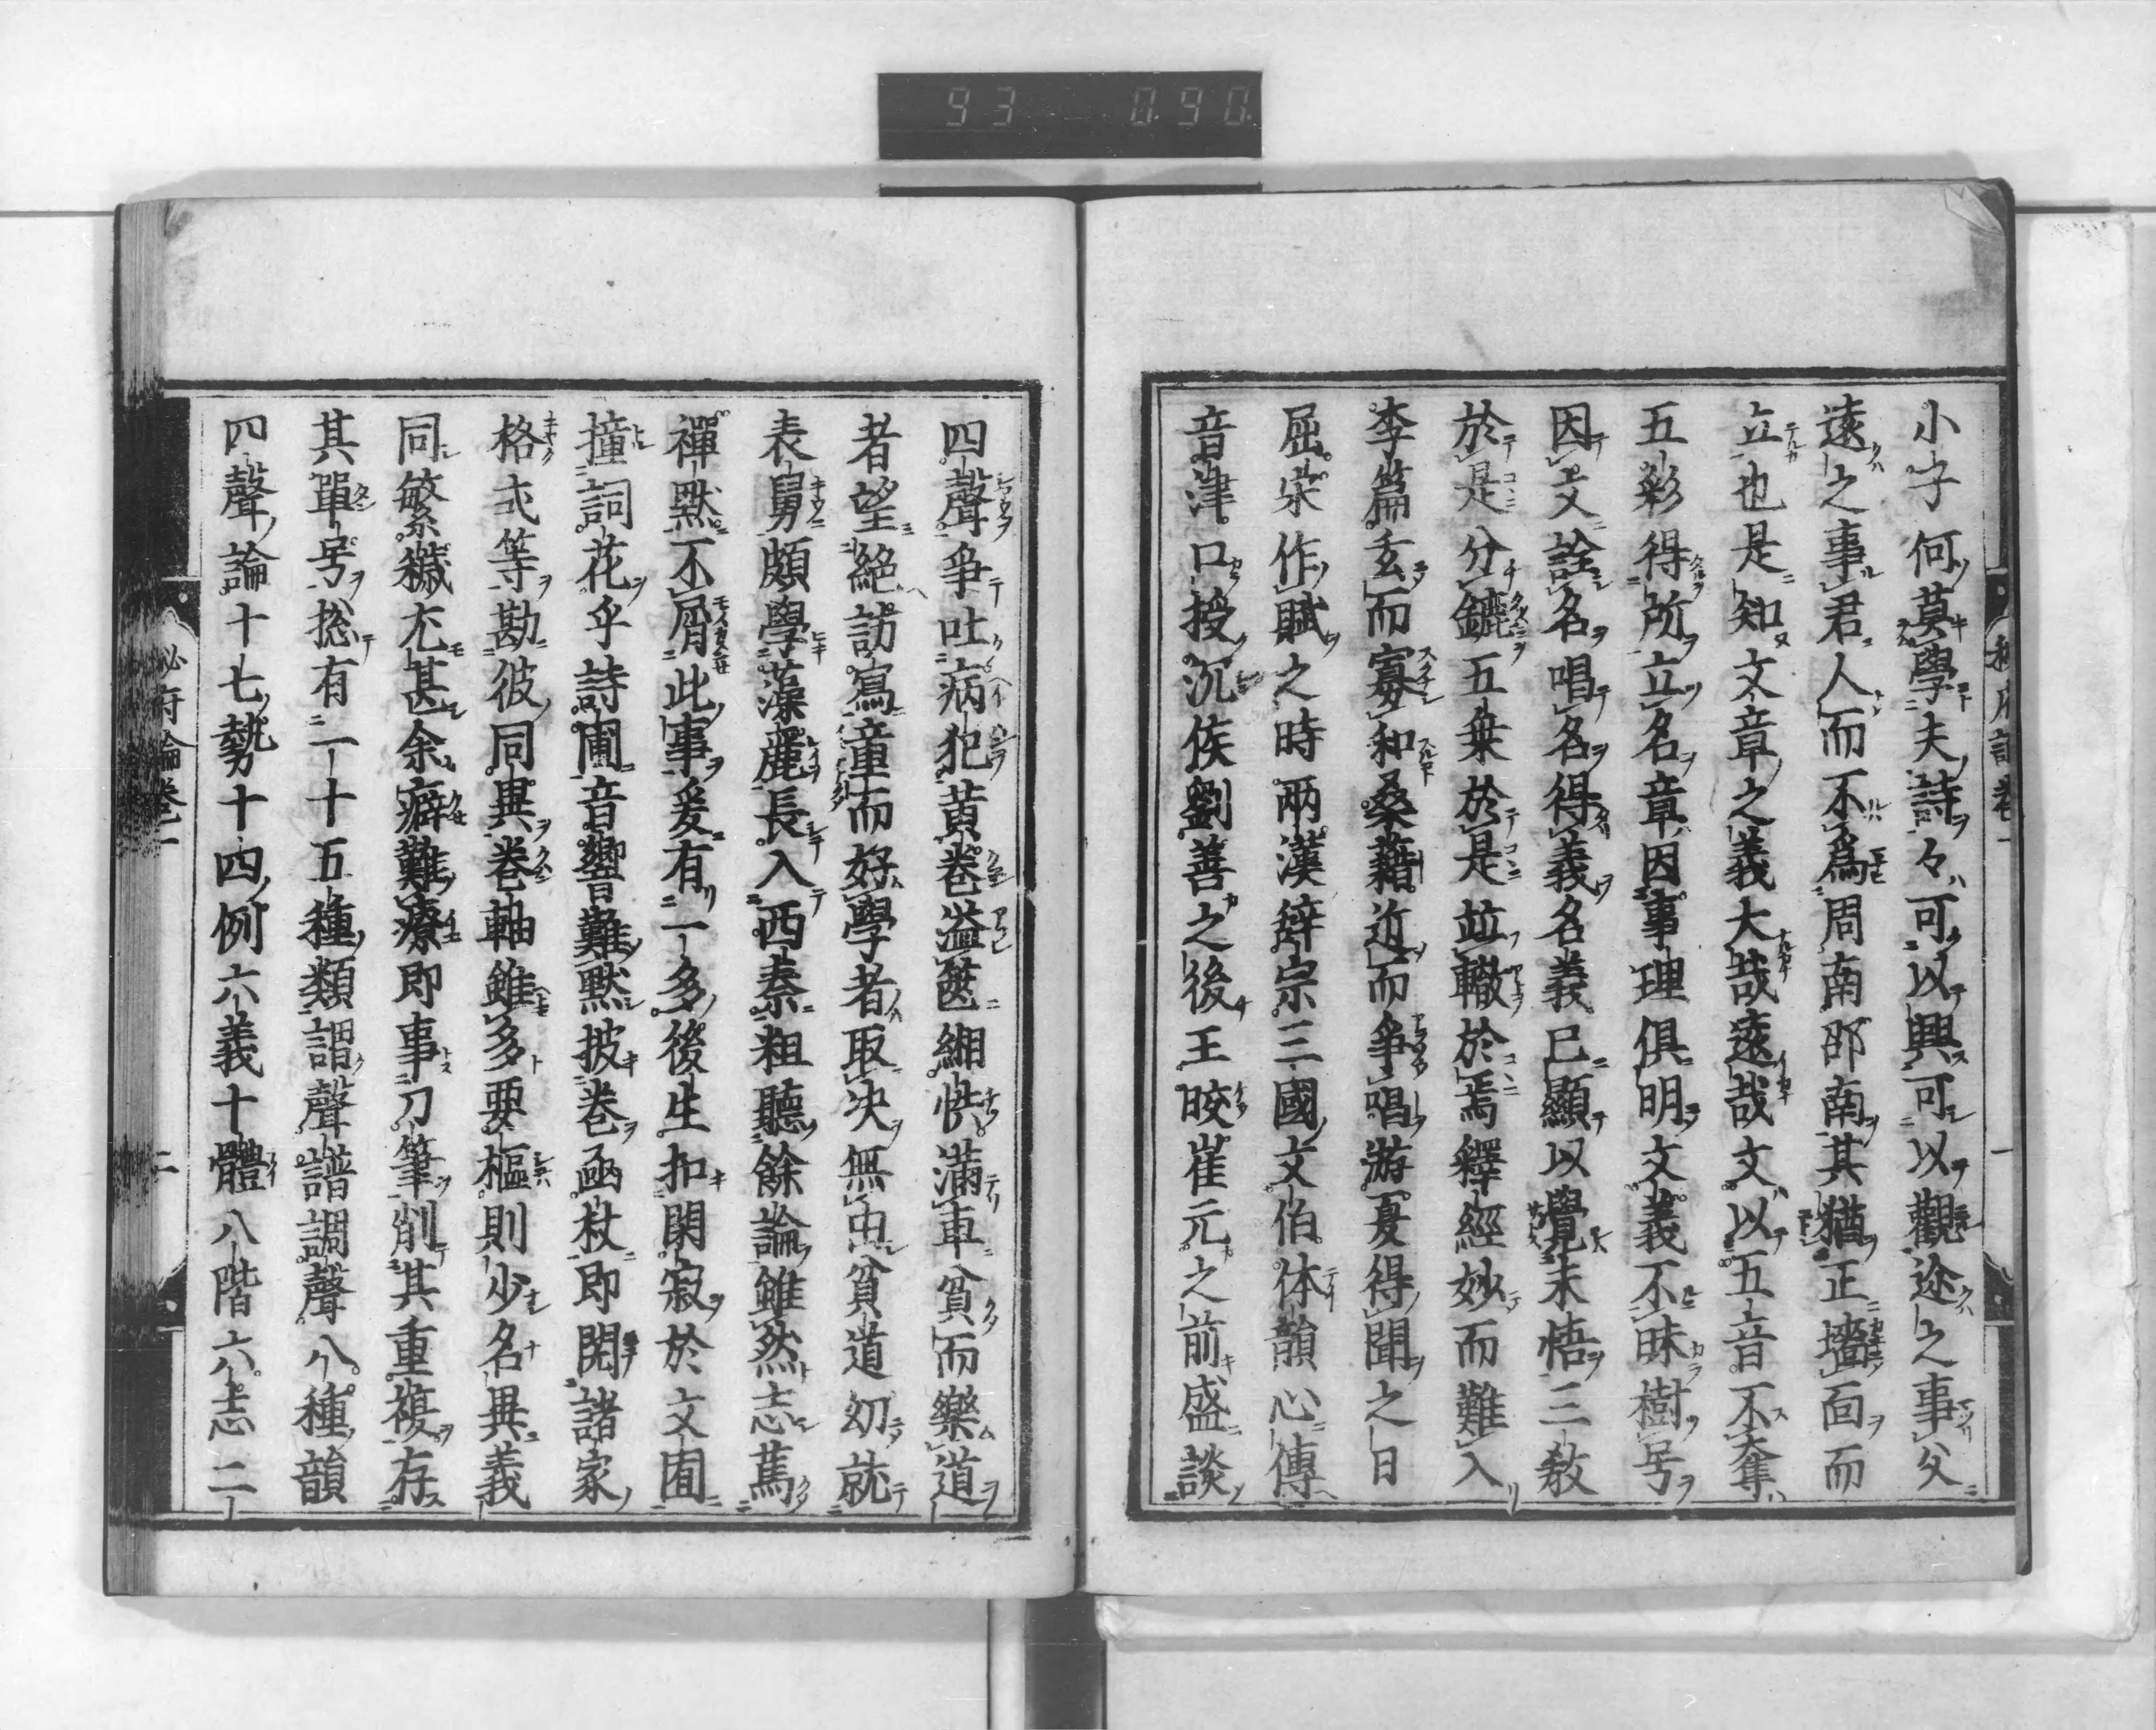 93 090
秘府論卷一 一
小子何莫學夫詩々可以興可以觀迩之事父
遠之事君人而不爲周南邵南其猶正墻面而
立也是知文章之義大哉遠哉文以五音不奪
五彩得所立名章因事理俱明文義不昧樹号
因文詮名唱名得義名義已顯以覺未悟三教
於是分鑣五乗於是竝轍於焉釋經妙而難入
李篇玄而寡和桑藉近而爭唱游夏得聞之日
屈宋作賦之時兩漢辞宗三國文伯体韻心傳
音津口授沉侯劉善之後王皎崔元之前盛談
四聲爭吐病犯黄卷溢篋緗帙滿車貧而樂道
者望絶訪寫童而好學者取决無由貧道幼就
表舅頗學藻麗長入西秦粗聽餘論雖然志萬
禪默不屑此事爰有一多後生扣閑寂於文囿
撞詞花乎詩圃音響難黙披卷函杖即閲諸家
格式等勘彼同異卷軸雖多要樞則少名異義
同繁穢尤甚余癖難療即事刀筆削其重複存
其單号捴有一十五種類謂聲譜調聲八種韻
四聲論十七勢十四例六義十體八階六志二
秘府論卷一 二